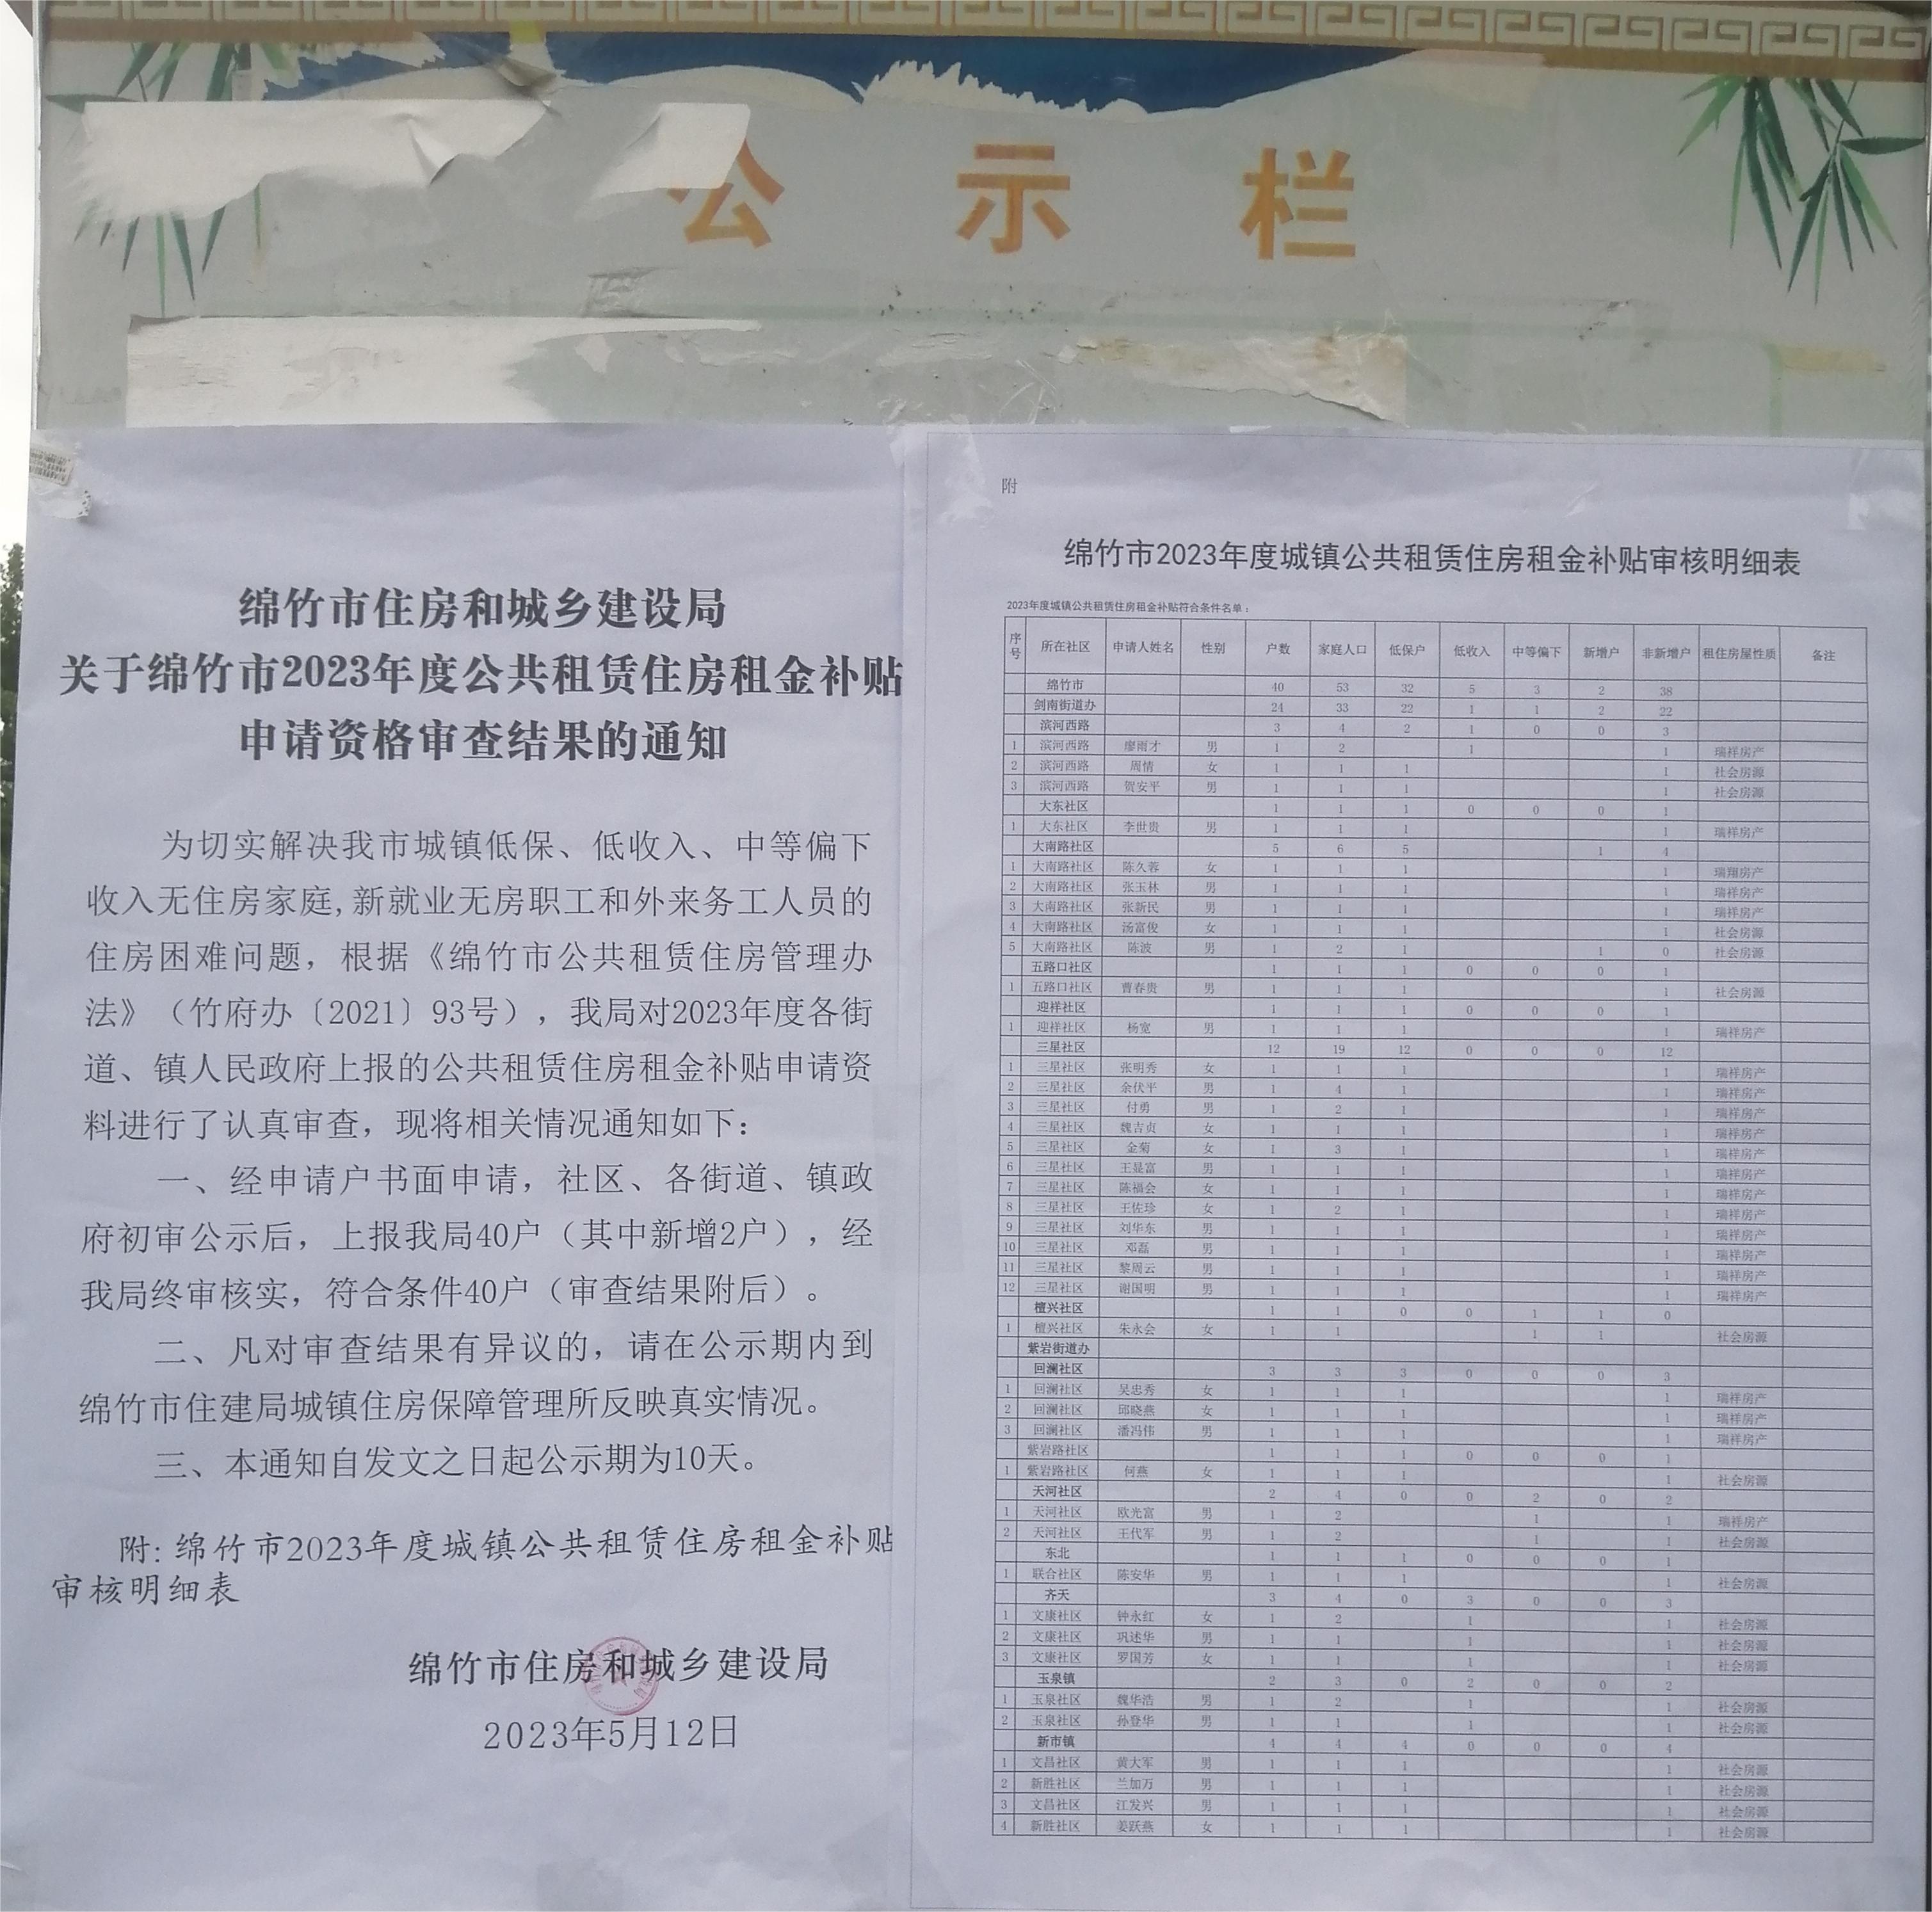 公示栏
绵竹市住房和城乡建设局
关于绵竹市2023年度公共租赁住房租金补贴
申请资格审查结果的通知
为切实解决我市城镇低保、低收入、中等偏下
收入无住房家庭,新就业无房职工和外来务工人员的
住房困难问题，根据《绵竹市公共租赁住房管理办
法》（竹府办〔2021〕93号），我局对2023年度各街
道、镇人民政府上报的公共租赁住房租金补贴申请资
料进行了认真审查，现将相关情况通知如下：
一、经申请户书面申请，社区、各街道、镇政
府初审公示后，上报我局40户（其中新增2户），经
我局终审核实，符合条件40户（审查结果附后）。
二、凡对审查结果有异议的，请在公示期内到
绵竹市住建局城镇住房保障管理所反映真实情况。
三、本通知自发文之日起公示期为10天。
附: 绵竹市2023年度城镇公共租赁住房租金补贴
审核明细表
绵竹市住房和城乡建设局
2023年5月12日
附
绵竹市2023年度城镇公共租赁住房租金补贴审核明细表
2023年度城镇公共租赁住房租金补贴符合条件名单：
序号 所在社区 申请人姓名 性别 户数 家庭人口 低保户 低收入 中等偏下 新增户 非新增户 租住房屋性质 备注
绵竹市 40 53 32 5 3 2 38
剑南街道办 24 33 22 1 1 2 22
滨河西路 3 4 2 1 0 0 3
1 滨河西路 廖雨才 男 1 2 1 1 瑞祥房产
2 滨河西路 周情 女 1 1 1 1 社会房源
3 滨河西路 贺安平 男 1 1 1 1 社会房源
大东社区 1 1 1 0 0 0 1
1 大东社区 李世贵 男 1 1 1 1 瑞祥房产
大南路社区 5 6 5 1 4
1 大南路社区 陈久蓉 女 1 1 1 1 瑞翔房产
2 大南路社区 张玉林 男 1 1 1 1 瑞祥房产
3 大南路社区 张新民 男 1 1 1 1 瑞祥房产
4 大南路社区 汤富俊 女 1 1 1 1 社会房源
5 大南路社区 陈波 男 1 2 1 1 0 社会房源
五路口社区 1 1 1 0 0 0 1
1 五路口社区 曹春贵 男 1 1 1 1 社会房源
迎祥社区 1 1 1 0 0 0 1
1 迎祥社区 杨宽 男 1 1 1 1 瑞祥房产
三星社区 12 19 12 0 0 0 12
1 三星社区 张明秀 女 1 1 1 1 瑞祥房产
2 三星社区 余伏平 男 1 4 1 1 瑞祥房产
3 三星社区 付勇 男 1 2 1 1 瑞祥房产
4 三星社区 魏吉贞 女 1 1 1 1 瑞祥房产
5 三星社区 金菊 女 1 3 1 1 瑞祥房产
6 三星社区 王显富 男 1 1 1 1 瑞祥房产
7 三星社区 陈福会 女 1 1 1 1 瑞祥房产
8 三星社区 王佐珍 女 1 2 1 1 瑞祥房产
9 三星社区 刘华东 男 1 1 1 1 瑞祥房产
10 三星社区 邓磊 男 1 1 1 1 瑞祥房产
11 三星社区 黎周云 男 1 1 1 1 瑞祥房产
12 三星社区 谢国明 男 1 1 1 1 瑞祥房产
檀兴社区 1 1 0 0 1 1 0
1 檀兴社区 朱永会 女 1 1 1 1 社会房源
紫岩街道办
回澜社区 3 3 3 0 0 0 3
1 回澜社区 吴忠秀 女 1 1 1 1 瑞祥房产
2 回澜社区 邱晓燕 女 1 1 1 1 瑞祥房产
3 回澜社区 潘冯伟 男 1 1 1 1 瑞祥房产
紫岩路社区 1 1 1 0 0 0 1
1 紫岩路社区 何燕 女 1 1 1 1 社会房源
天河社区 2 4 0 0 2 0 2
1 天河社区 欧光富 男 1 2 1 1 瑞祥房产
2 天河社区 王代军 男 1 2 1 1 社会房源
东北 1 1 1 0 0 0 1
1 联合社区 陈安华 男 1 1 1 1 社会房源
齐天 3 4 0 3 0 0 3
1 文康社区 钟永红 女 1 2 1 1 社会房源
2 文康社区 巩述华 男 1 1 1 1 社会房源
3 文康社区 罗国芳 女 1 1 1 1 社会房源
玉泉镇 2 3 0 2 0 0 2
1 玉泉社区 魏华浩 男 1 2 1 1 社会房源
2 玉泉社区 孙登华 男 1 1 1 1 社会房源
新市镇 4 4 4 0 0 0 4
1 文昌社区 黄大军 男 1 1 1 1 社会房源
2 新胜社区 兰加万 男 1 1 1 1 社会房源
3 文昌社区 江发兴 男 1 1 1 1 社会房源
4 新胜社区 姜跃燕 女 1 1 1 1 社会房源